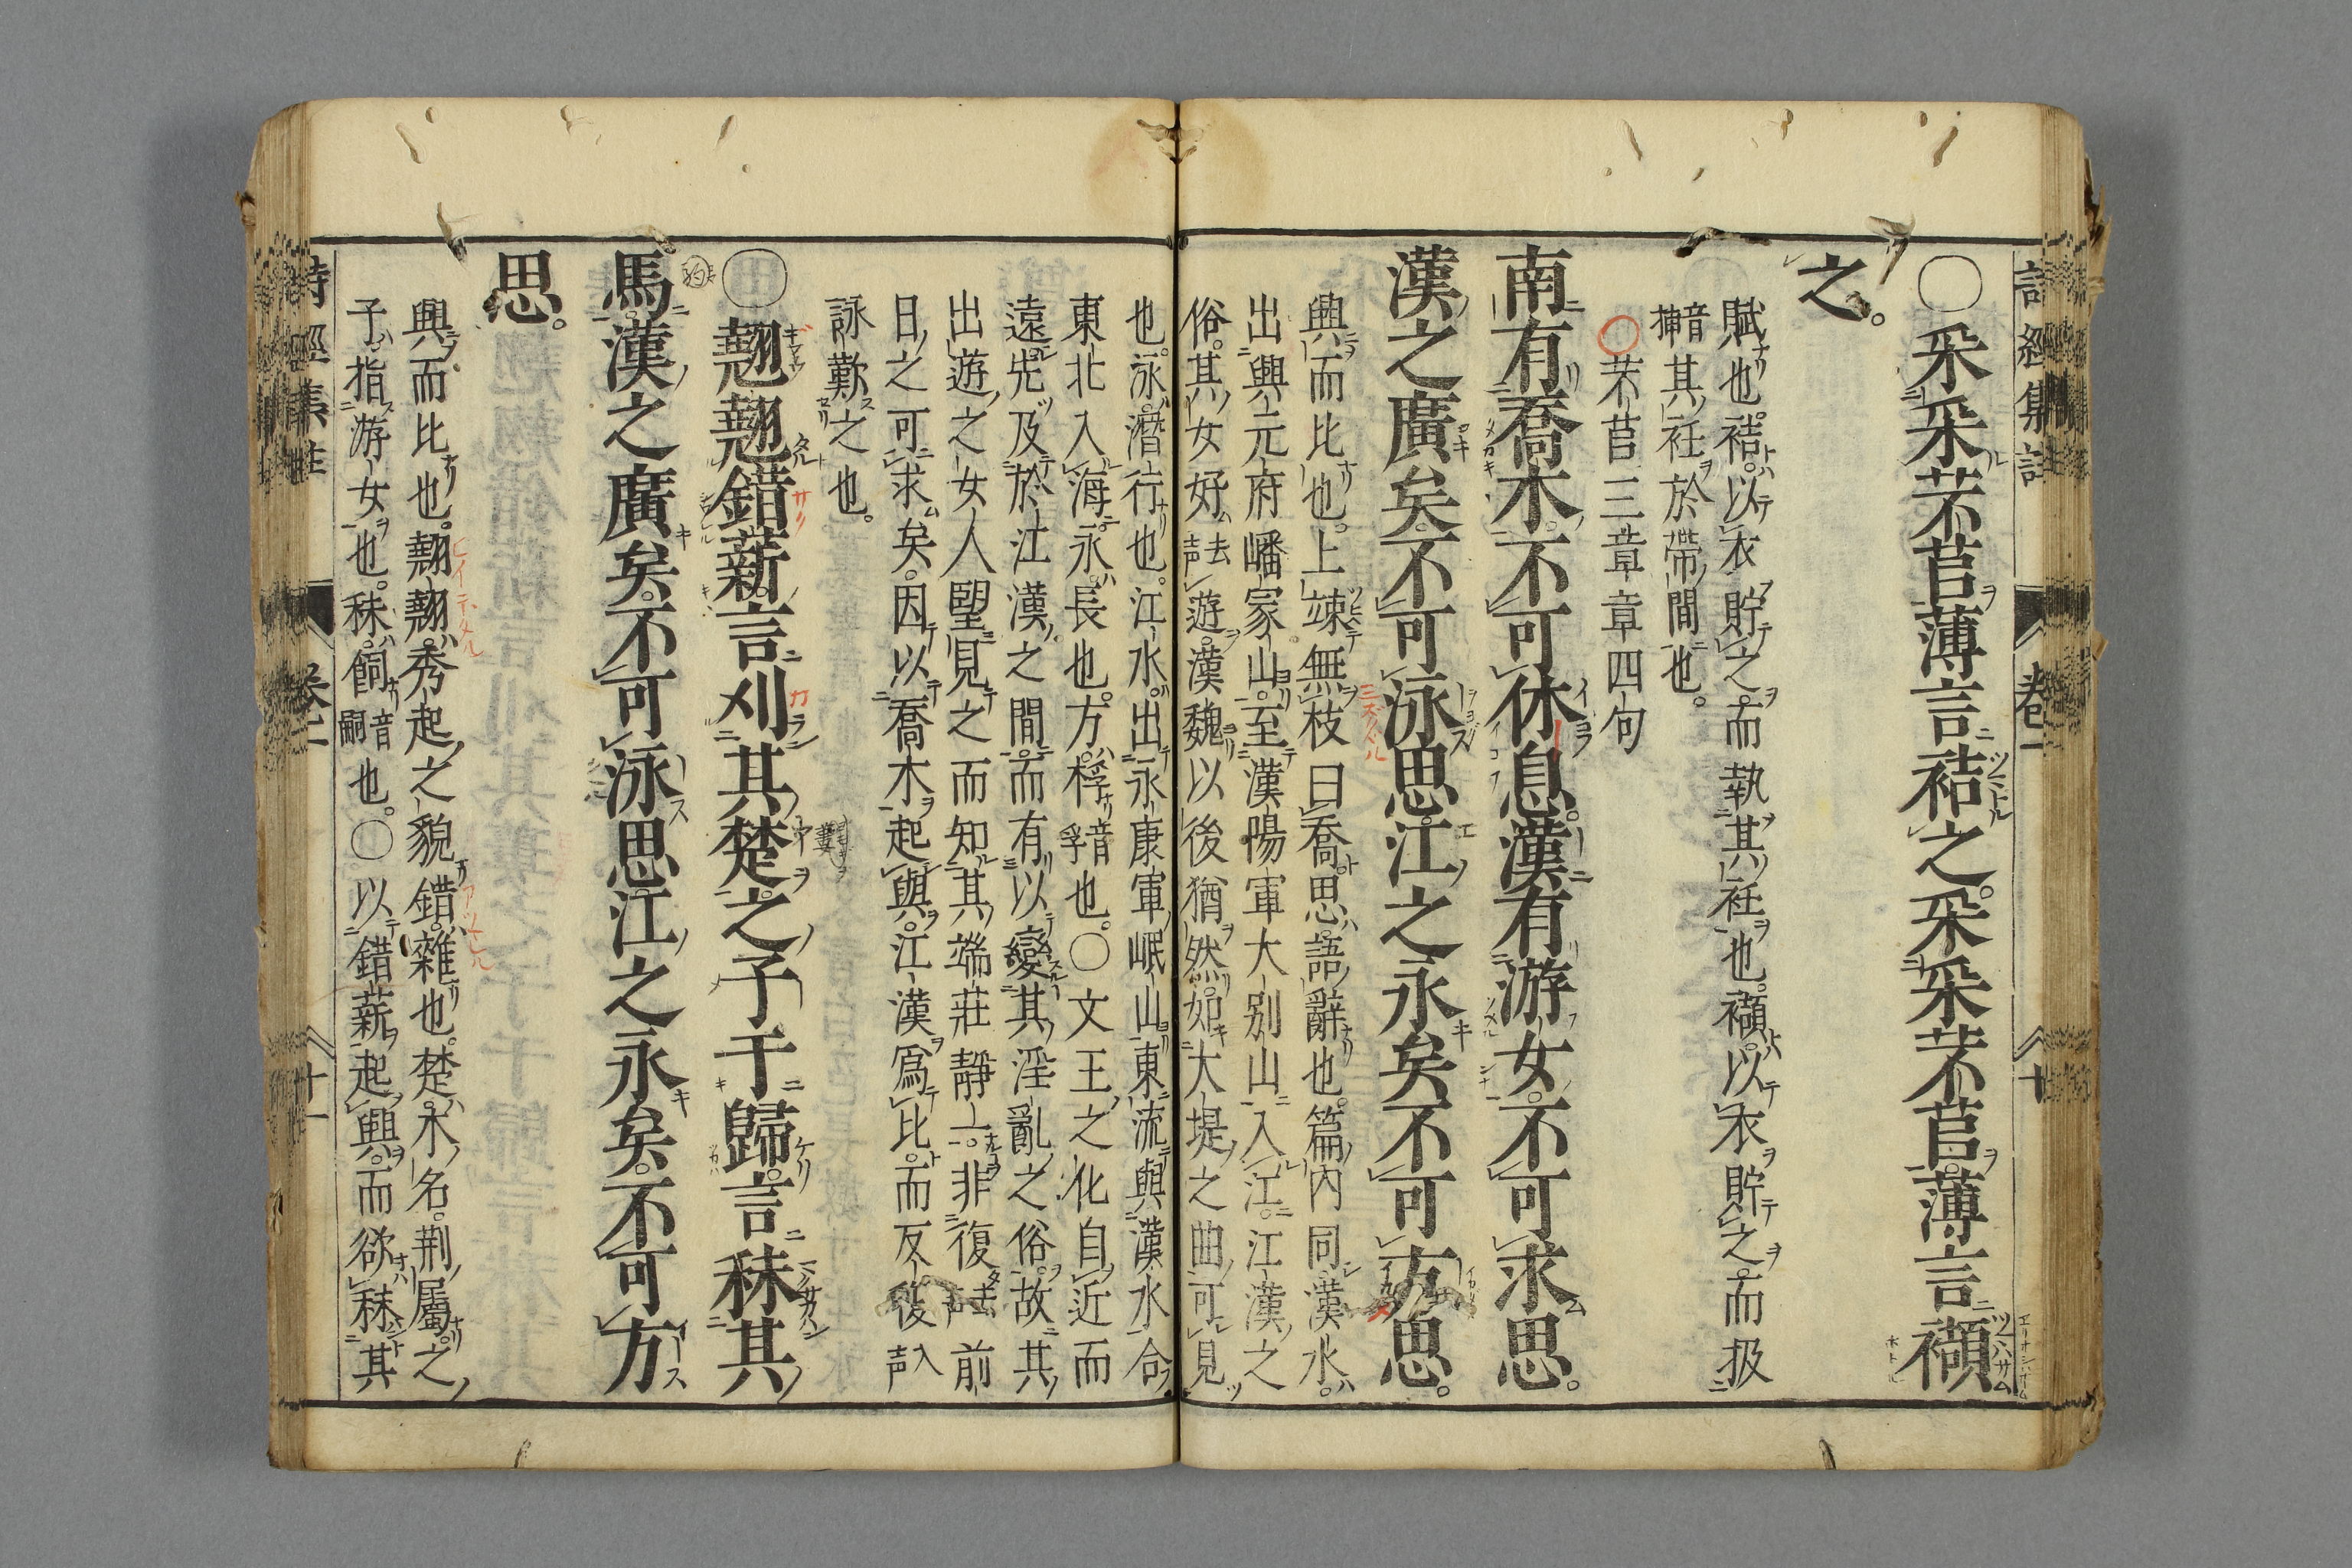 ○采采芣苢薄言袺之。采采芣苢薄言襭
之。
賦也。袺以衣貯之。而執其衽也。襭以衣貯之。而扱
音挿其衽於帶間也。
○芣苢三章章四句
南有喬木。不可休息。漢有游女。不可求思。
漢之廣矣。不可泳思。江之永矣。不可方思。
興而比也。上竦無枝曰喬。思。語辭也。篇內同。漢水。
出興元府嶓冢山。至漢陽軍大別山入江。江漢之
俗。其女好去声遊。漢魏以後猶然。如大堤之曲可見
也。泳。潛行也。江水。出永康軍岷山。東流與漢水合
東北入海。永。長也。方。桴音孚也。○文王之化自近而
遠。先及於江漢之間。而有以變其淫亂之俗。故其
出遊之女人望見之而知其端莊靜一。非復去声前
日之可求矣。因以喬木起興。江漢爲比。而反復入声
詠歎之也。
○翹翹錯薪。言刈其楚。之子于歸。言秣其
馬。漢之廣矣。不可泳思。江之永矣。不可方
思。
興而比也。翹翹。秀起之貌。錯。雜也。楚。木名。荊屬。之
子。指游女也。秣。飼音嗣也。○以錯薪起興。而欲秣其
詩經集註
卷一
十一